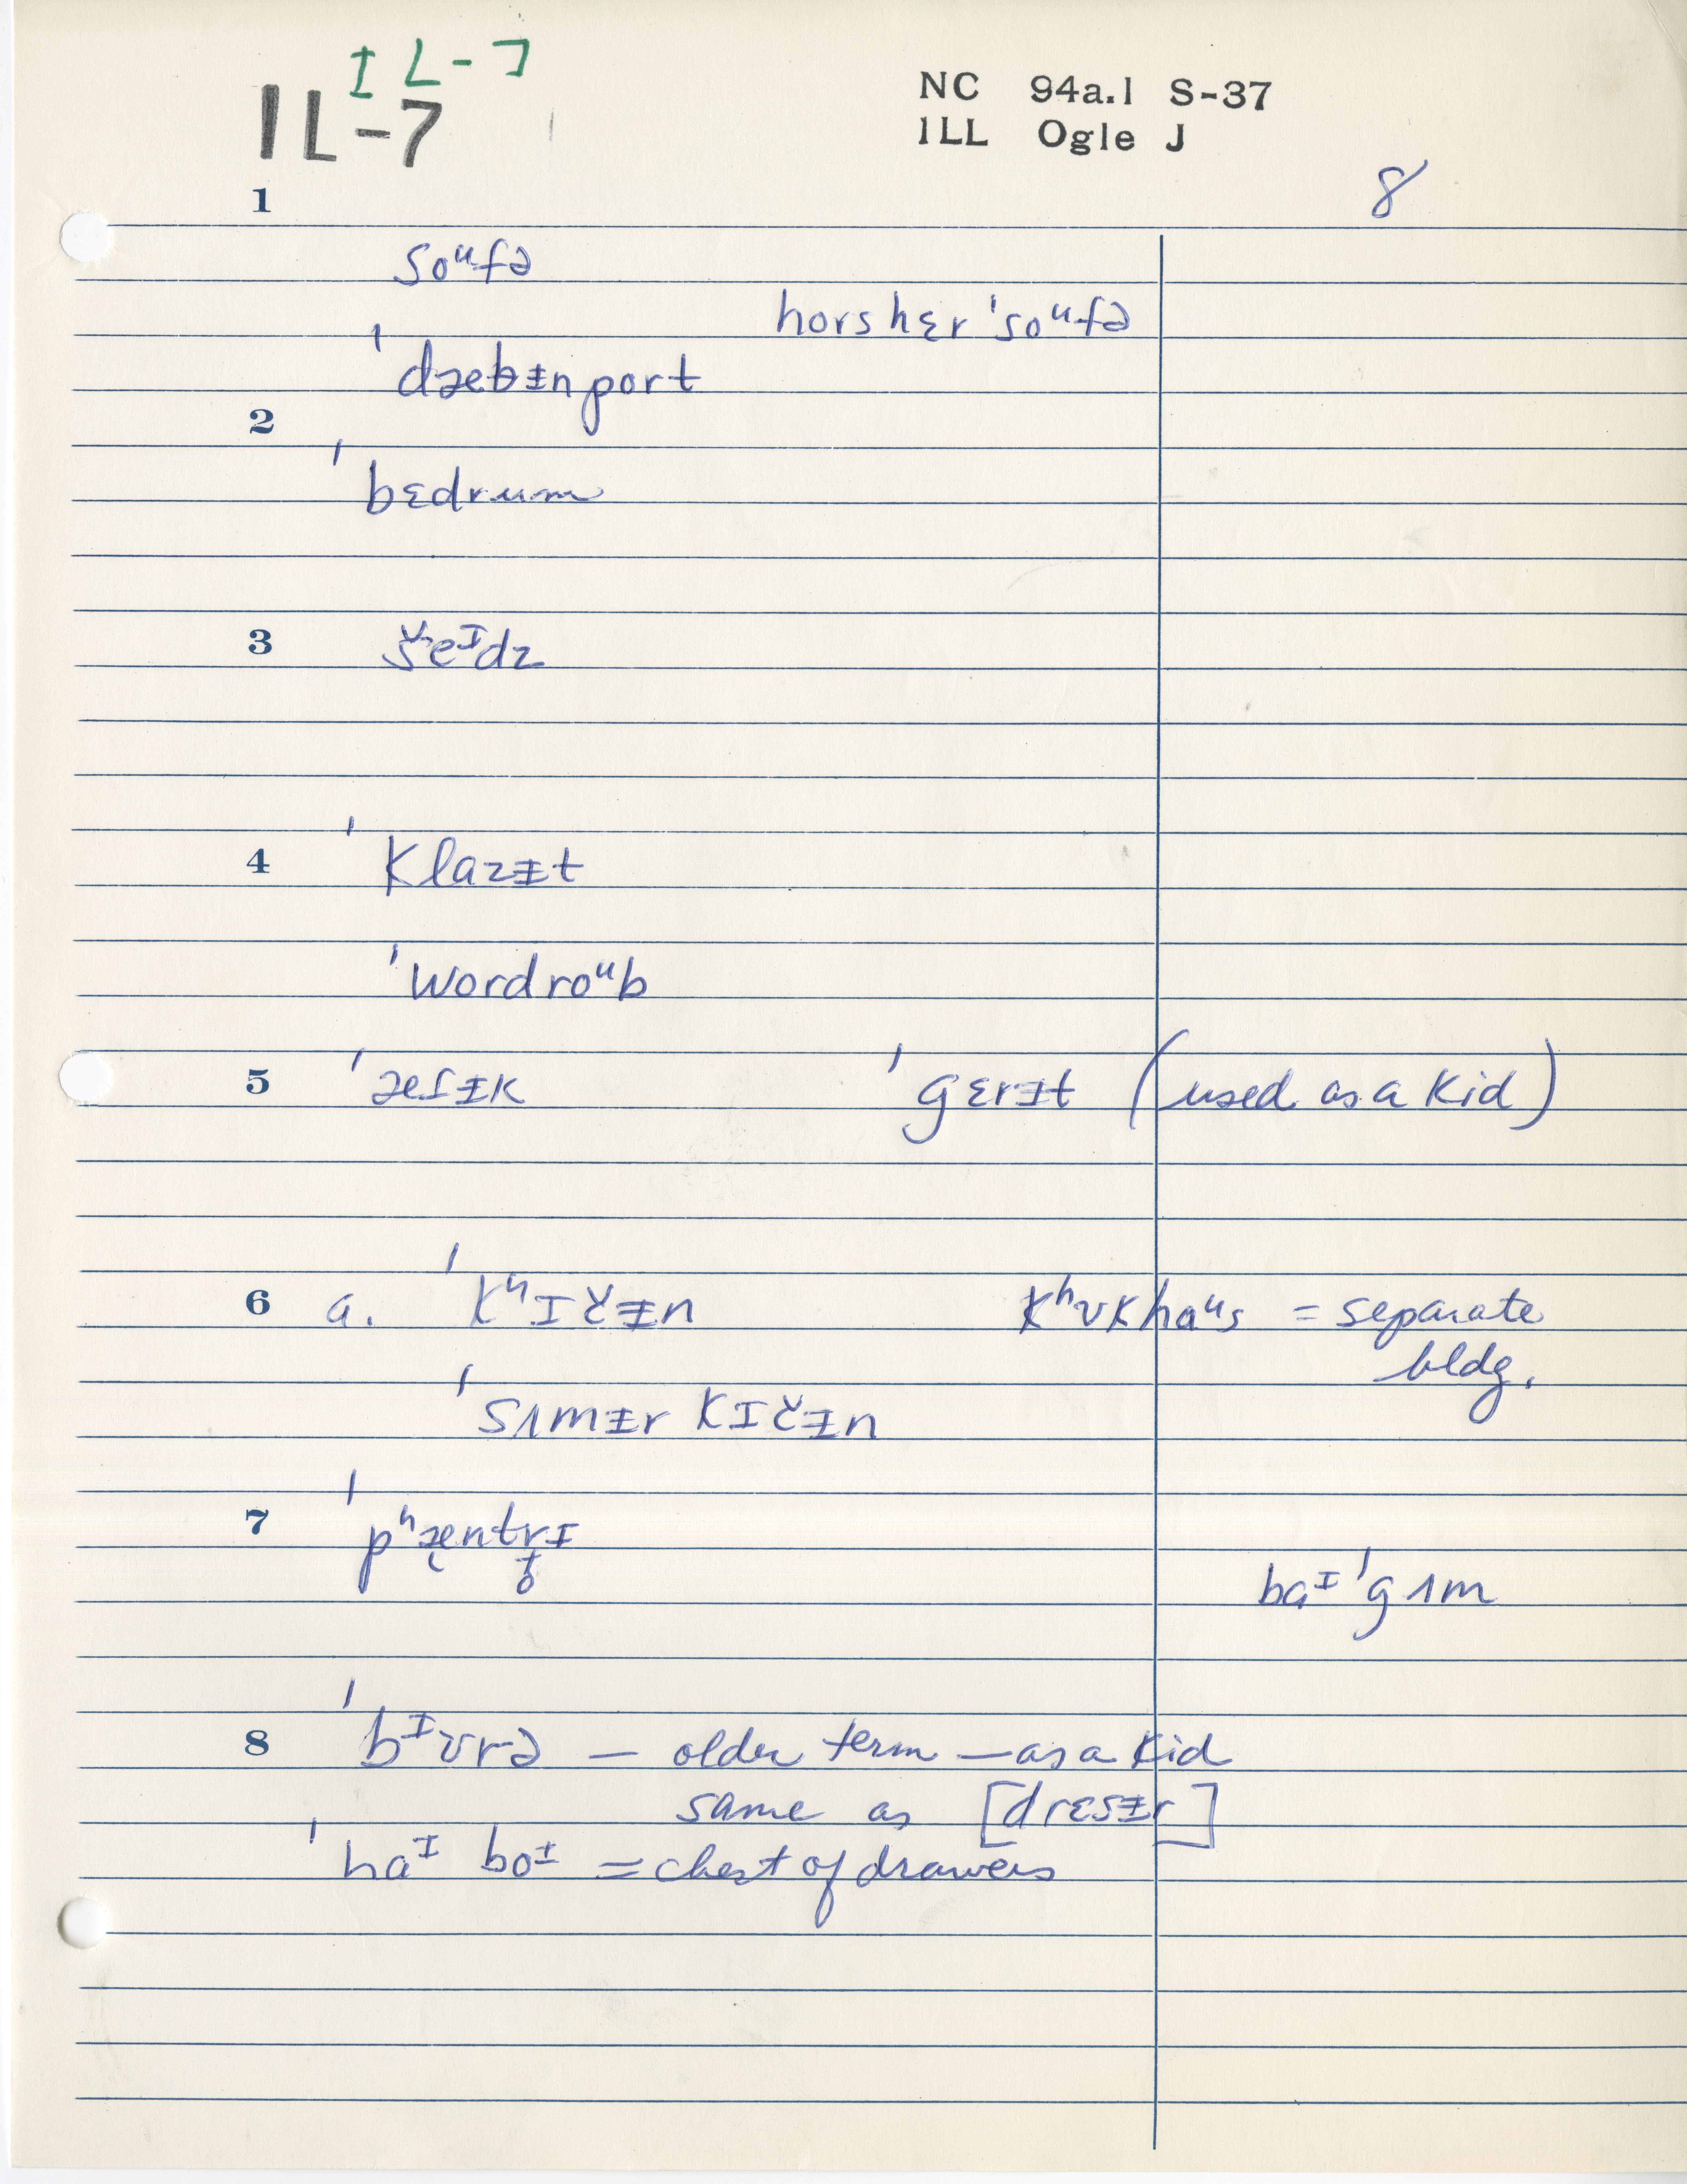 IL-7
IL-7
NC 94a.1 S-37
ILL Ogle J
8
1
soᵘfə
horshɛr ˈsoᵘfə
ˈdæbᵻnport
2
ˈbɛdrum
3
šeᴵdz
4 ˈklazᵻt
ˈwordroᵘb
5 ˈætᵻk ˈgɛrᵻt (used as a kid)
6 a. ˈkʰɪčᵻn kʰʊkhaᵘs = separate
bldg.
ˈsʌmᵻr kɪčᵻn
7 ˈpʰæntrɪ
baᴵˈgʌm
8 ˈbᴵʊrə – older term – as a kid
same as [drɛsᵻr]
ˈhaᴵ boᶧ = chest of drawers